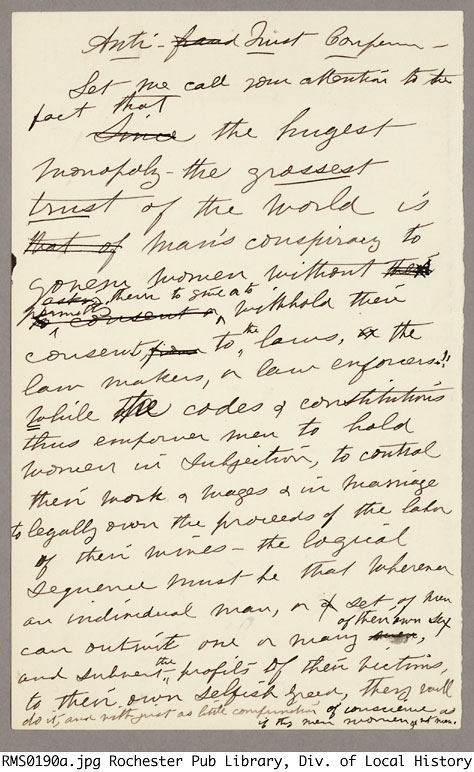 Anti- fraud Trust Conferen-
Let me call your attention to the
fact that
Since the hugest
monopoly - the grossest
trust of the world is
that of man's conspiracy to
govern women without
asking them to give or to
permitting
consent or withhold their
consent, from to the laws, or the
law makers, or law enforcers!!
While the codes & constitutions
thus empower men to hold
women in subjection, to control
their work & wages & in marriage
to legally own the proceeds of the labor
of their wives - the logical
sequence must be that wherever
an individual man, or a set of men
of their own sex
can outwit one or many men,
and subvert the profits of their victims,
to their own selfish greed, they will
do it, and with just as little compunction of conscience as
if the men women
RMS0190a.jpg Rochester Pub Library, Div. of Local History